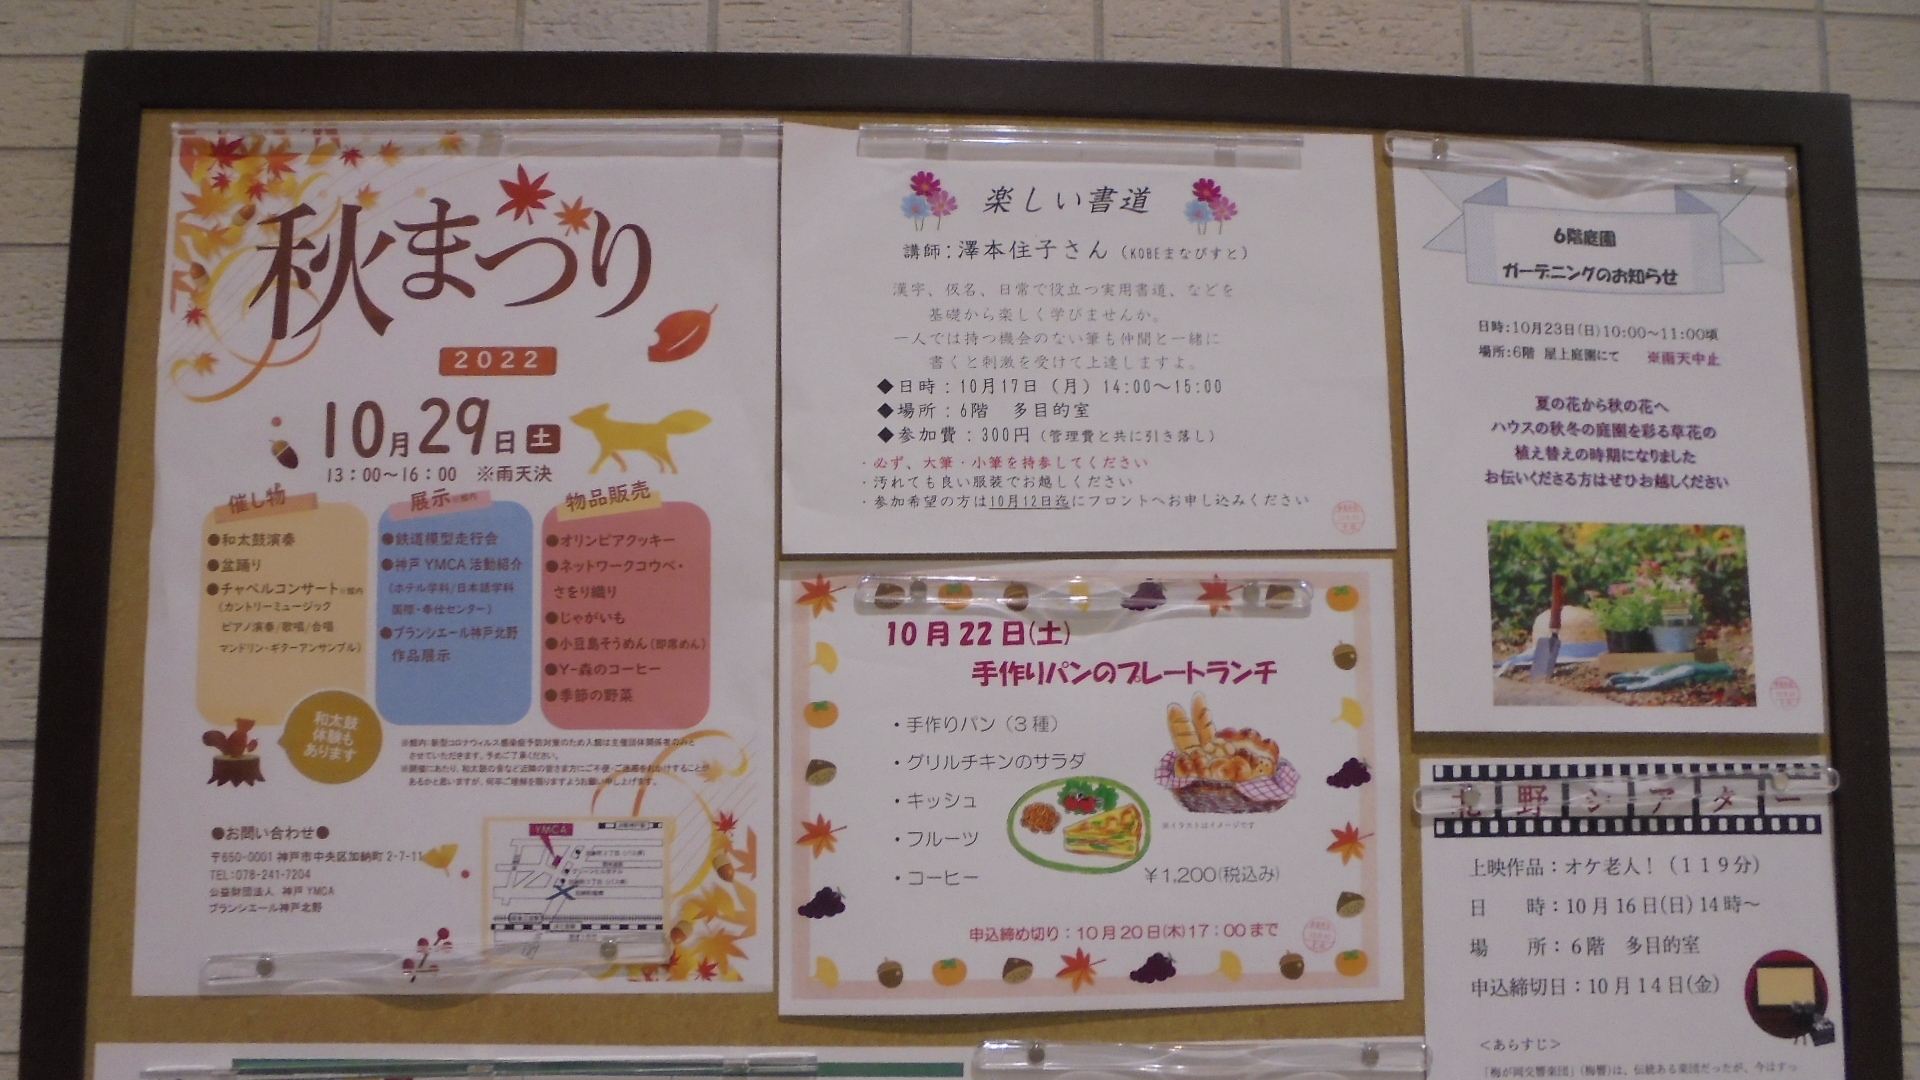 秋まつり
2022
10月29日 土
13:00〜16:00 ※雨天決
催し物
●和太鼓演奏
●盆踊り
●チャペルコンサート※館内
（カントリーミュージック
ピアノ演奏/歌唱/合唱
マンドリン・ギターアンサンブル）
展示※館内
●鉄道模型走行会
●神戸YMCA活動紹介
（ホテル学科/日本語学科
国際・奉仕センター）
●ブランシエール神戸北野
作品展示
物品販売
●オリンピアクッキー
●ネットワークコウベ・
さをり織り
●じゃがいも
●小豆島そうめん（即席めん）
●Y-森のコーヒー
●季節の野菜
和太鼓
体験も
あります
※館内：新型コロナウィルス感染症予防対策のため入館は主催団体関係者のみと
させていただきます。予めご了承ください。
※開催にあたり、和太鼓の音など近隣の皆さま方にご不便・ご迷惑をおかけすることが
あるかと思いますが、何卒ご理解を賜りますようお願い申し上げます。
●お問い合わせ●
〒650-0001 神戸市中央区加納町2-7-11
TEL:078-241-7204
公益財団法人 神戸YMCA
ブランシエール神戸北野
YMCA
楽しい書道
講師：澤本住子さん（KOBEまなびすと）
漢字、仮名、日常で役立つ実用書道、などを
基礎から楽しく学びませんか。
一人では持つ機会のない筆も仲間と一緒に
書くと刺激を受けて上達しますよ。
◆日時：10月17日（月）14:00〜15:00
◆場所：6階 多目的室
◆参加費：300円（管理費と共に引き落し）
・必ず、大筆・小筆を持参してください
・汚れても良い服装でお越しください
・参加希望の方は10月12日迄にフロントへお申し込みください
10月22日(土)
手作りパンのプレートランチ
・手作りパン（3種）
・グリルチキンのサラダ
・キッシュ
・フルーツ
・コーヒー
※イラストはイメージです
￥1,200(税込み)
申込締め切り：10月20日(木)17：00まで
6階庭園
ガーデニングのお知らせ
日時:10月23日(日)10:00〜11:00頃
場所:6階 屋上庭園にて ※雨天中止
夏の花から秋の花へ
ハウスの秋冬の庭園を彩る草花の
植え替えの時期になりました
お伝いくださる方はぜひお越しください
北野シアター
上映作品：オケ老人！（119分）
日 時：10月16日(日)14時〜
場 所：6階 多目的室
申込締切日：10月14日(金)
＜あらすじ＞
「梅が岡交響楽団」（梅響）は、伝統ある楽団だったが、今はすっ